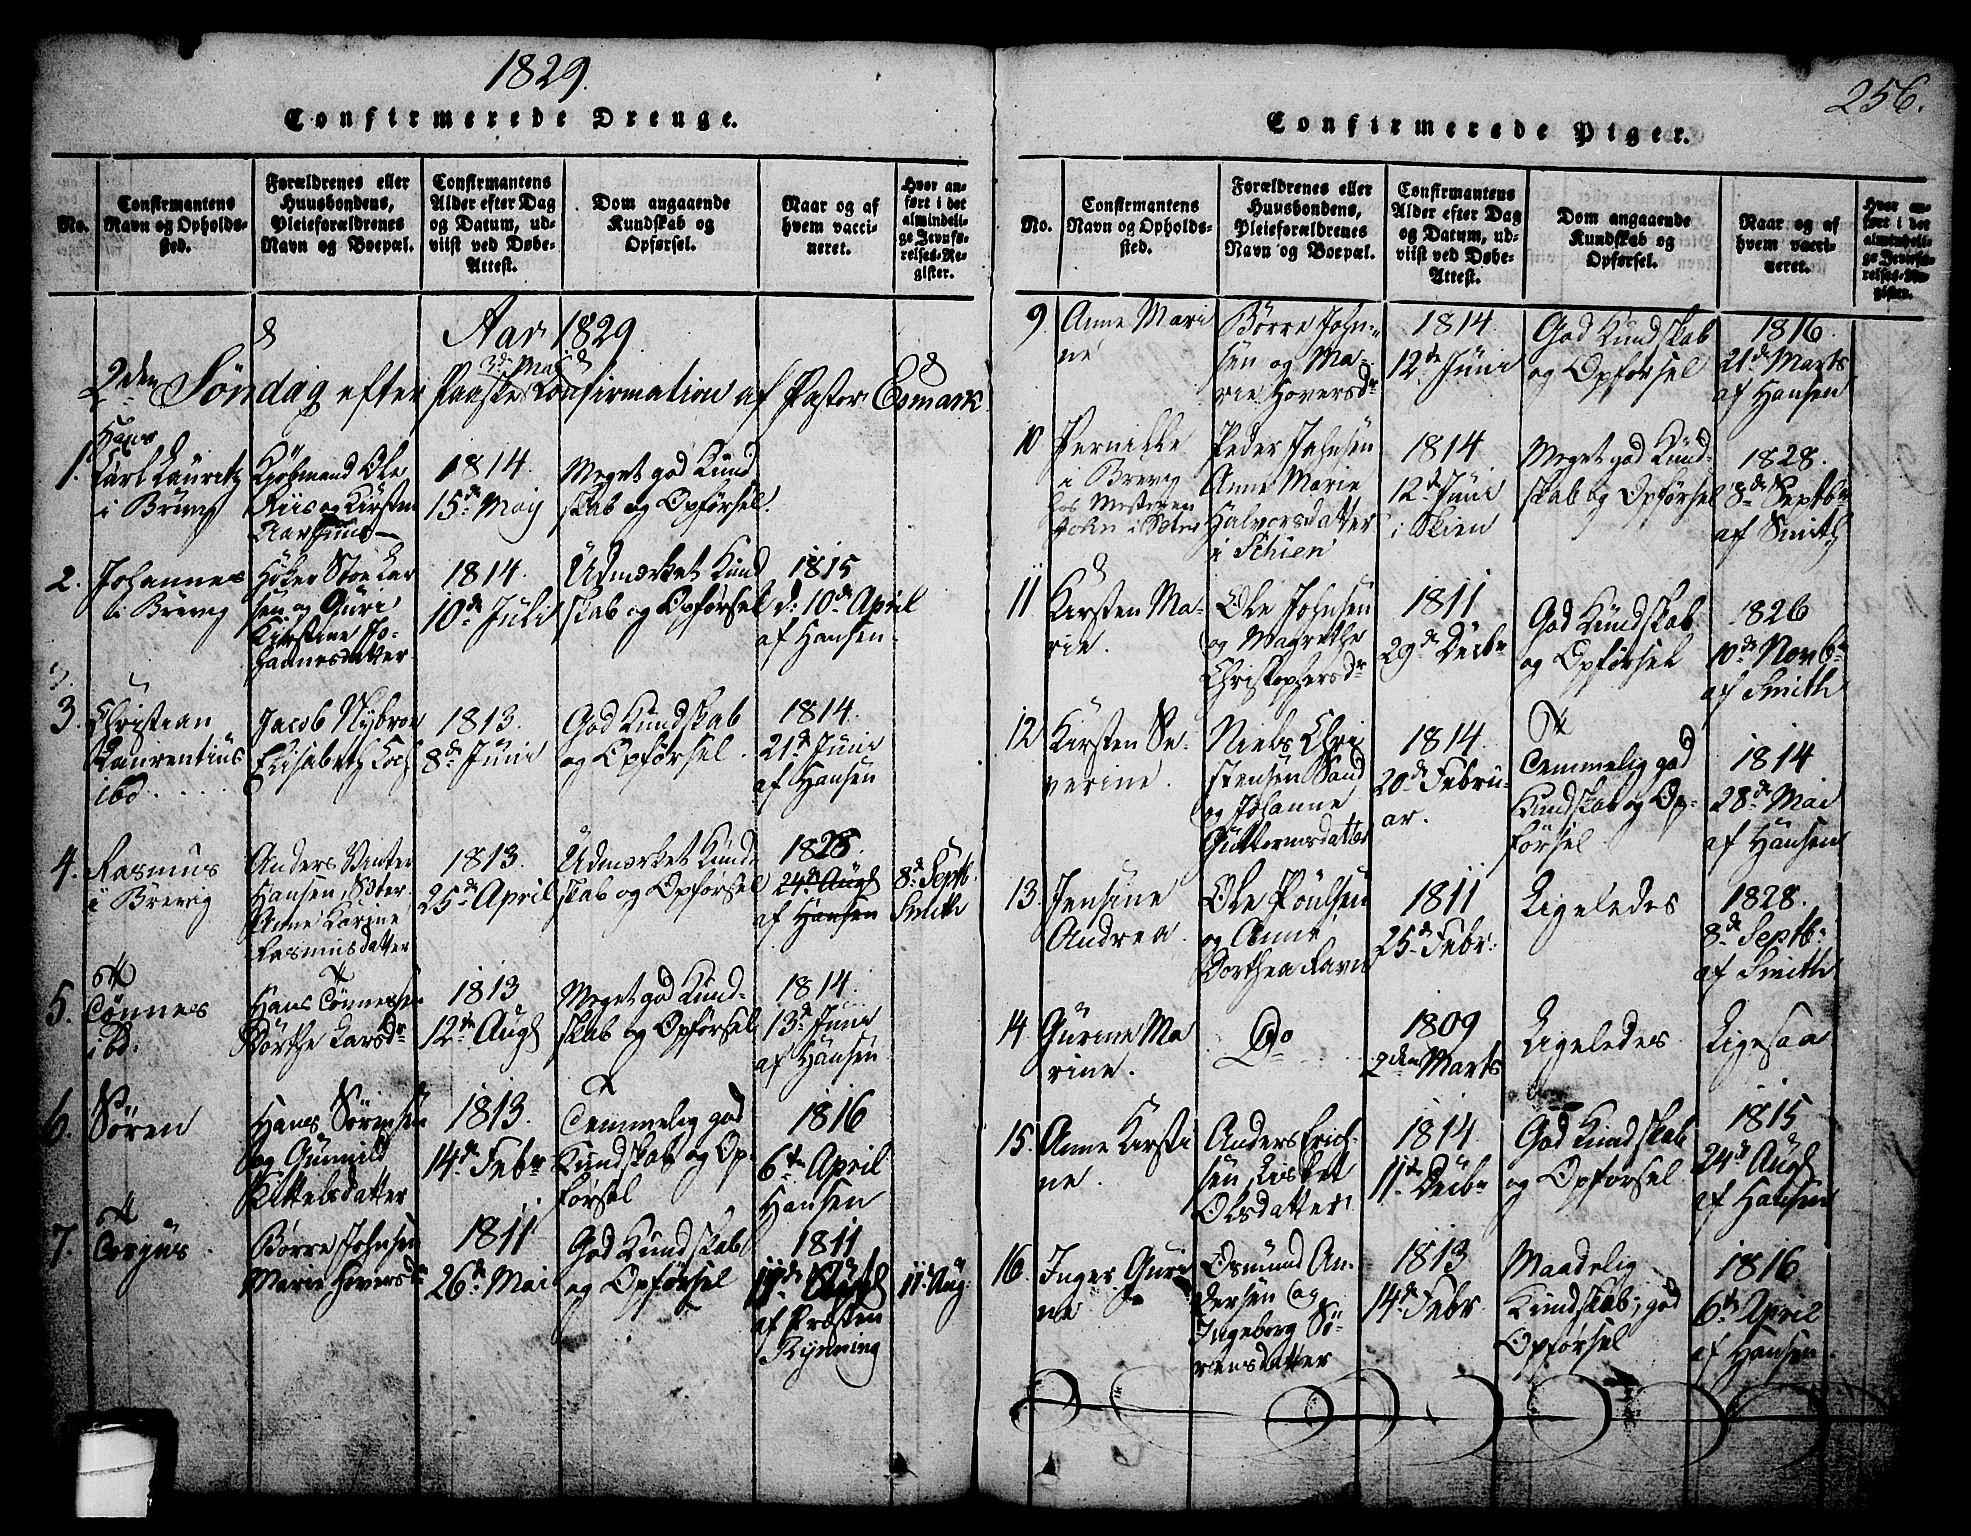 1829.
Confirmerede Drenge.
No.
Confirmantens
Navn og Opholds-
sted.
Forældrenes eller
Huusbondens,
Pleieforældrenes
Navn og Boepæl.
Confirmantens
Alder efter Dag
og Datum, ud-
viist ved Døbe-
Attest.
Dom angaaende
Kundskab og
Opførsel.
Naar og af
hvem vacci-
neret.
Hvor an-
ført i det
almindeli-
ge Jevnfø-
relses-Re-
gister.
Aar 1829
3d Mai
2den Søndag efter Paaske Confirmation af Pastor Esmark
1.
Hans
Carl Lauritz
i Brevig
Kjøbmand Ole
Riis og Kirsten
1814.
15de Maij
Meget god Kund
skab og Opførsel.
2.
Johannes
i Brevig
Høker Stoe Lar
sen og Guri
Kirstine Jo-
hannesdatter
1814.
10de Juli
Udmærket Kund
skab og Opførsel
1815
d: 10de April
af Hansen
3.
Christian
Laurentius
ibd.
Jacob Nybroe
Elisabeth Koch
1813.
8de Juni
God Kundskab
og Opførsel.
1814.
21de Juni
af Hansen
4.
Rasmus
i Brevig
Anders Winter
Hansen Sæter
Anne Karine
Rasmusdatter
1813.
25de April
Udmærket Kund-
skab og Opførsel
1828.
24de Augst
af Hansen
8de Septb.
Smith
5.
Tønnes
ibd.
Hans Tønnesen
Dorthe Larsdr
1813
12te Augst
Meget god Kund-
skab og Opførsel
1814.
13de Juni
af Hansen
6.
Søren
Hans Sørensen
og Gunnild
Kittelsdatter
1813.
14de Febr
Temmelig god
Kundskab og Op-
førsel
1816
6te April
Hansen
7.
Terjus
Børre Johnsen
Marie Hoversdr
1811
26de Mai
God Kundskab
og Opførsel
1811
af Præsten
Rynning
11te Aug:
256.
Confirmerede Piger.
No.
Confirmantens
Navn og Opholds-
sted.
Forældrenes eller
Huusbondens,
Pleieforældrenes
Navn og Boepæl.
Confirmantens
Alder efter Dag
og Datum, ud-
viist ved Døbe-
Attest.
Dom angaaende
Kundskab og
Opførsel.
Naar og af
hvem vacci-
neret.
Hvor an-
ført i det
almindeli-
ge Jevnfø-
relses-Re-
gister.
9.
Anne Mari
ne
Børre John-
sen og Ma-
rie Hoversdr
1814
12te Juni
God Kundskab
og Opførsel
1816.
21de Marts
af Hansen
10
Pernille
i Brevig
Peder Johnsen
Anne Marie
Halvorsdatter
i Schien
1814
12te Juni
i Skien
Meget god Kund-
skab og Opførsel
1828.
8de Septbr
af Smith
11
Kirsten Ma-
rie.
Ole Johnsen
og Magrethe
Christophersdr
1811
29de Decbr
God Kundskab
og Opførsel
1826
10de Novbr
af Smith
12
Kirsten Se-
verine.
Niels Chri
stensen Sand
og Johanne
Guttormsdatter
1814.
20de Febru-
ar.
Temmelig god
Kundskab og Op-
førsel
1814
28de Mai
af Hansen
13.
Jensine
Andrea.
Ole Poulsen
og Anne
Dorthea Ravn
1811
25de Febr:
Ligeledes
1828.
8de Septb:
af Smith
14
Gurine Ma
rine.
Do
1809
2den Marts
Ligeledes
Ligesaa
15.
Anne Kirsti
ne.
Anders Erich-
sen, Lisbet
Olsdatter
1814
11te Decbr
God Kundskab
og Opførsel
1815
24de Augst
af Hansen
16.
Inger Guri
ne
Osmund An-
dersen og
Ingeborg Sø-
rensdatter
1813
14de Febr
Maadelig
Kundskab, god
Opførsel
1816
6te April
af Hansen.